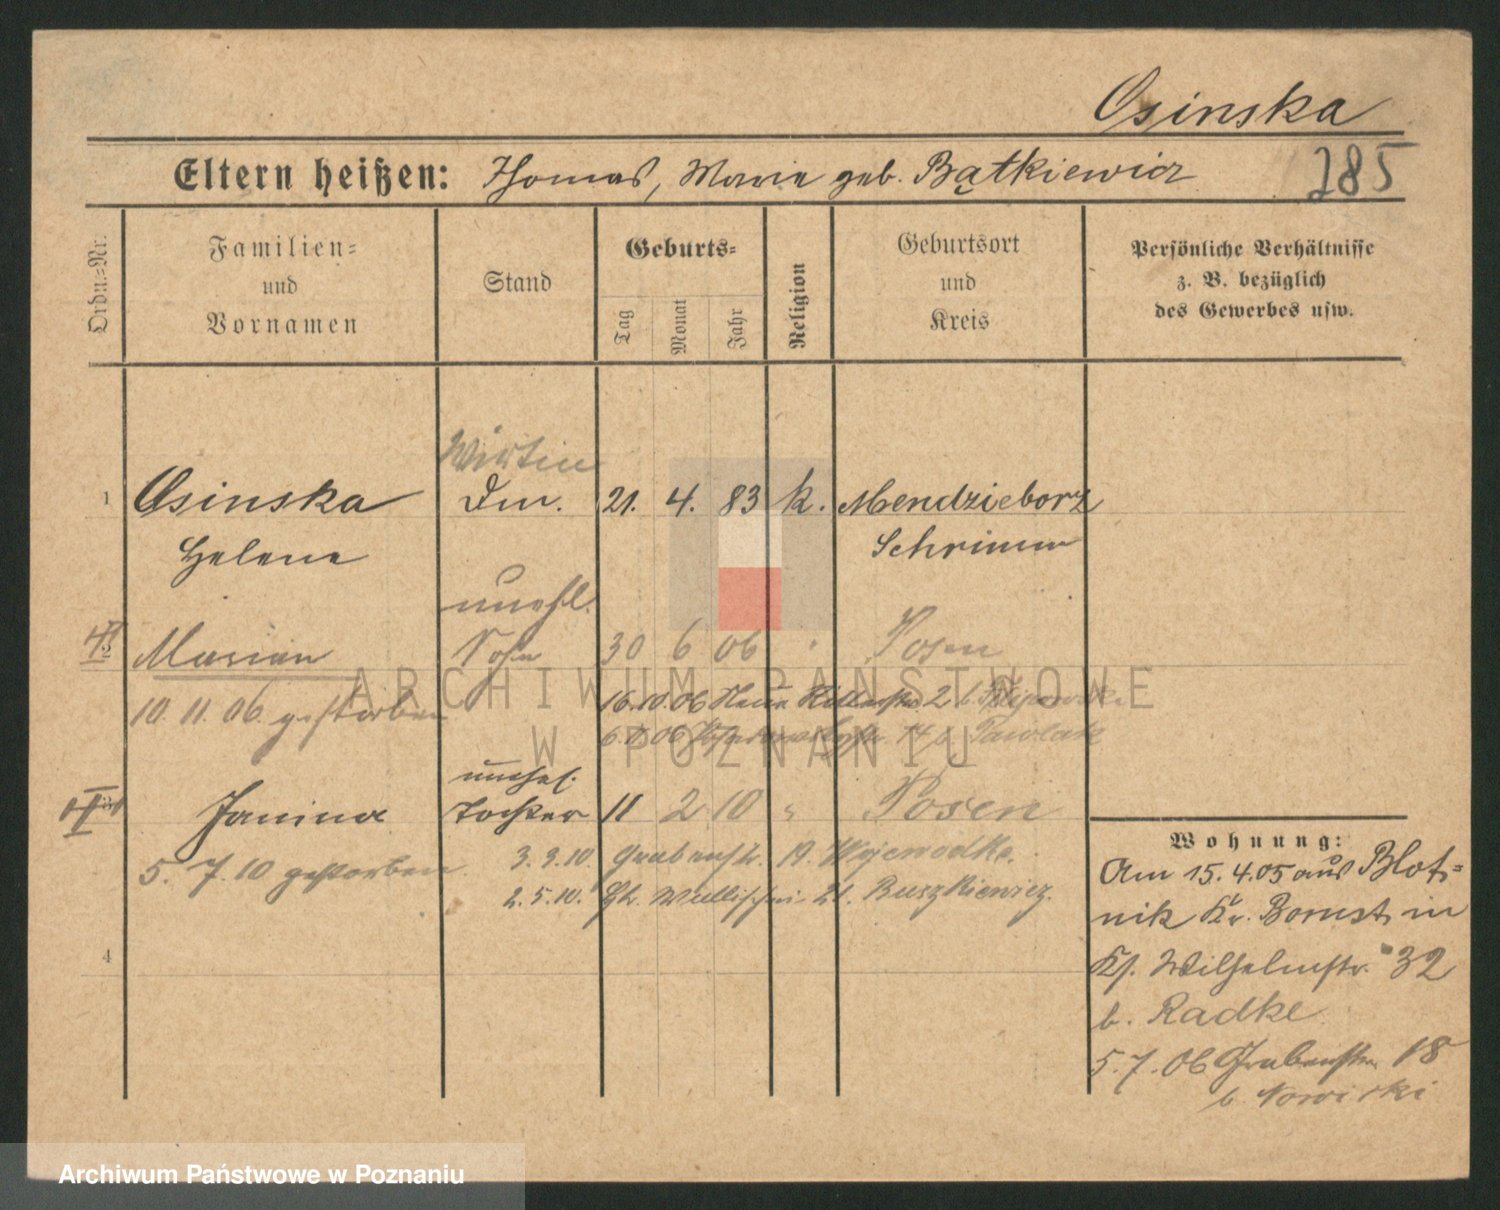 Osinska
Eltern heißen: Thomas, Marie geb. Bątkiewicz
285
Ordn.=Nr.
Familien=
und
Vornamen
Stand
Geburts=
Tag
Monat
Jahr
Religion
Geburtsort
und
Kreis
Persönliche Verhältnisse
z. B. bezüglich
des Gewerbes usw.
Wirtin
1 Osinska Dm. 21. 4. 83 k. Mendzieborz
Helene Schrimm
unehl.
2 Marian Sohn 30 6 06 Posen
10. 11. 06 gestorben 16.10.06 Neue 2 b.
14 b. Pawlak
unehel.
3 Janina Tochter 11 2 10 " Posen
5. 7. 10 gestorben 3. 3. 10 Grabenstr. 19. Wojewodka.
2. 5. 10. Gr. 21. Buszkiewicz.
4
Wohnung:
Am 15. 4. 05 aus Blot=
nik Kr. Bomst in
Ks. Wilhelmstr. 32
b. Radke
5. 7. 06 Grabenstr. 18
b. Nowicki
ARCHIWUM PAŃSTWOWE
W POZNANIU
Archiwum Państwowe w Poznaniu